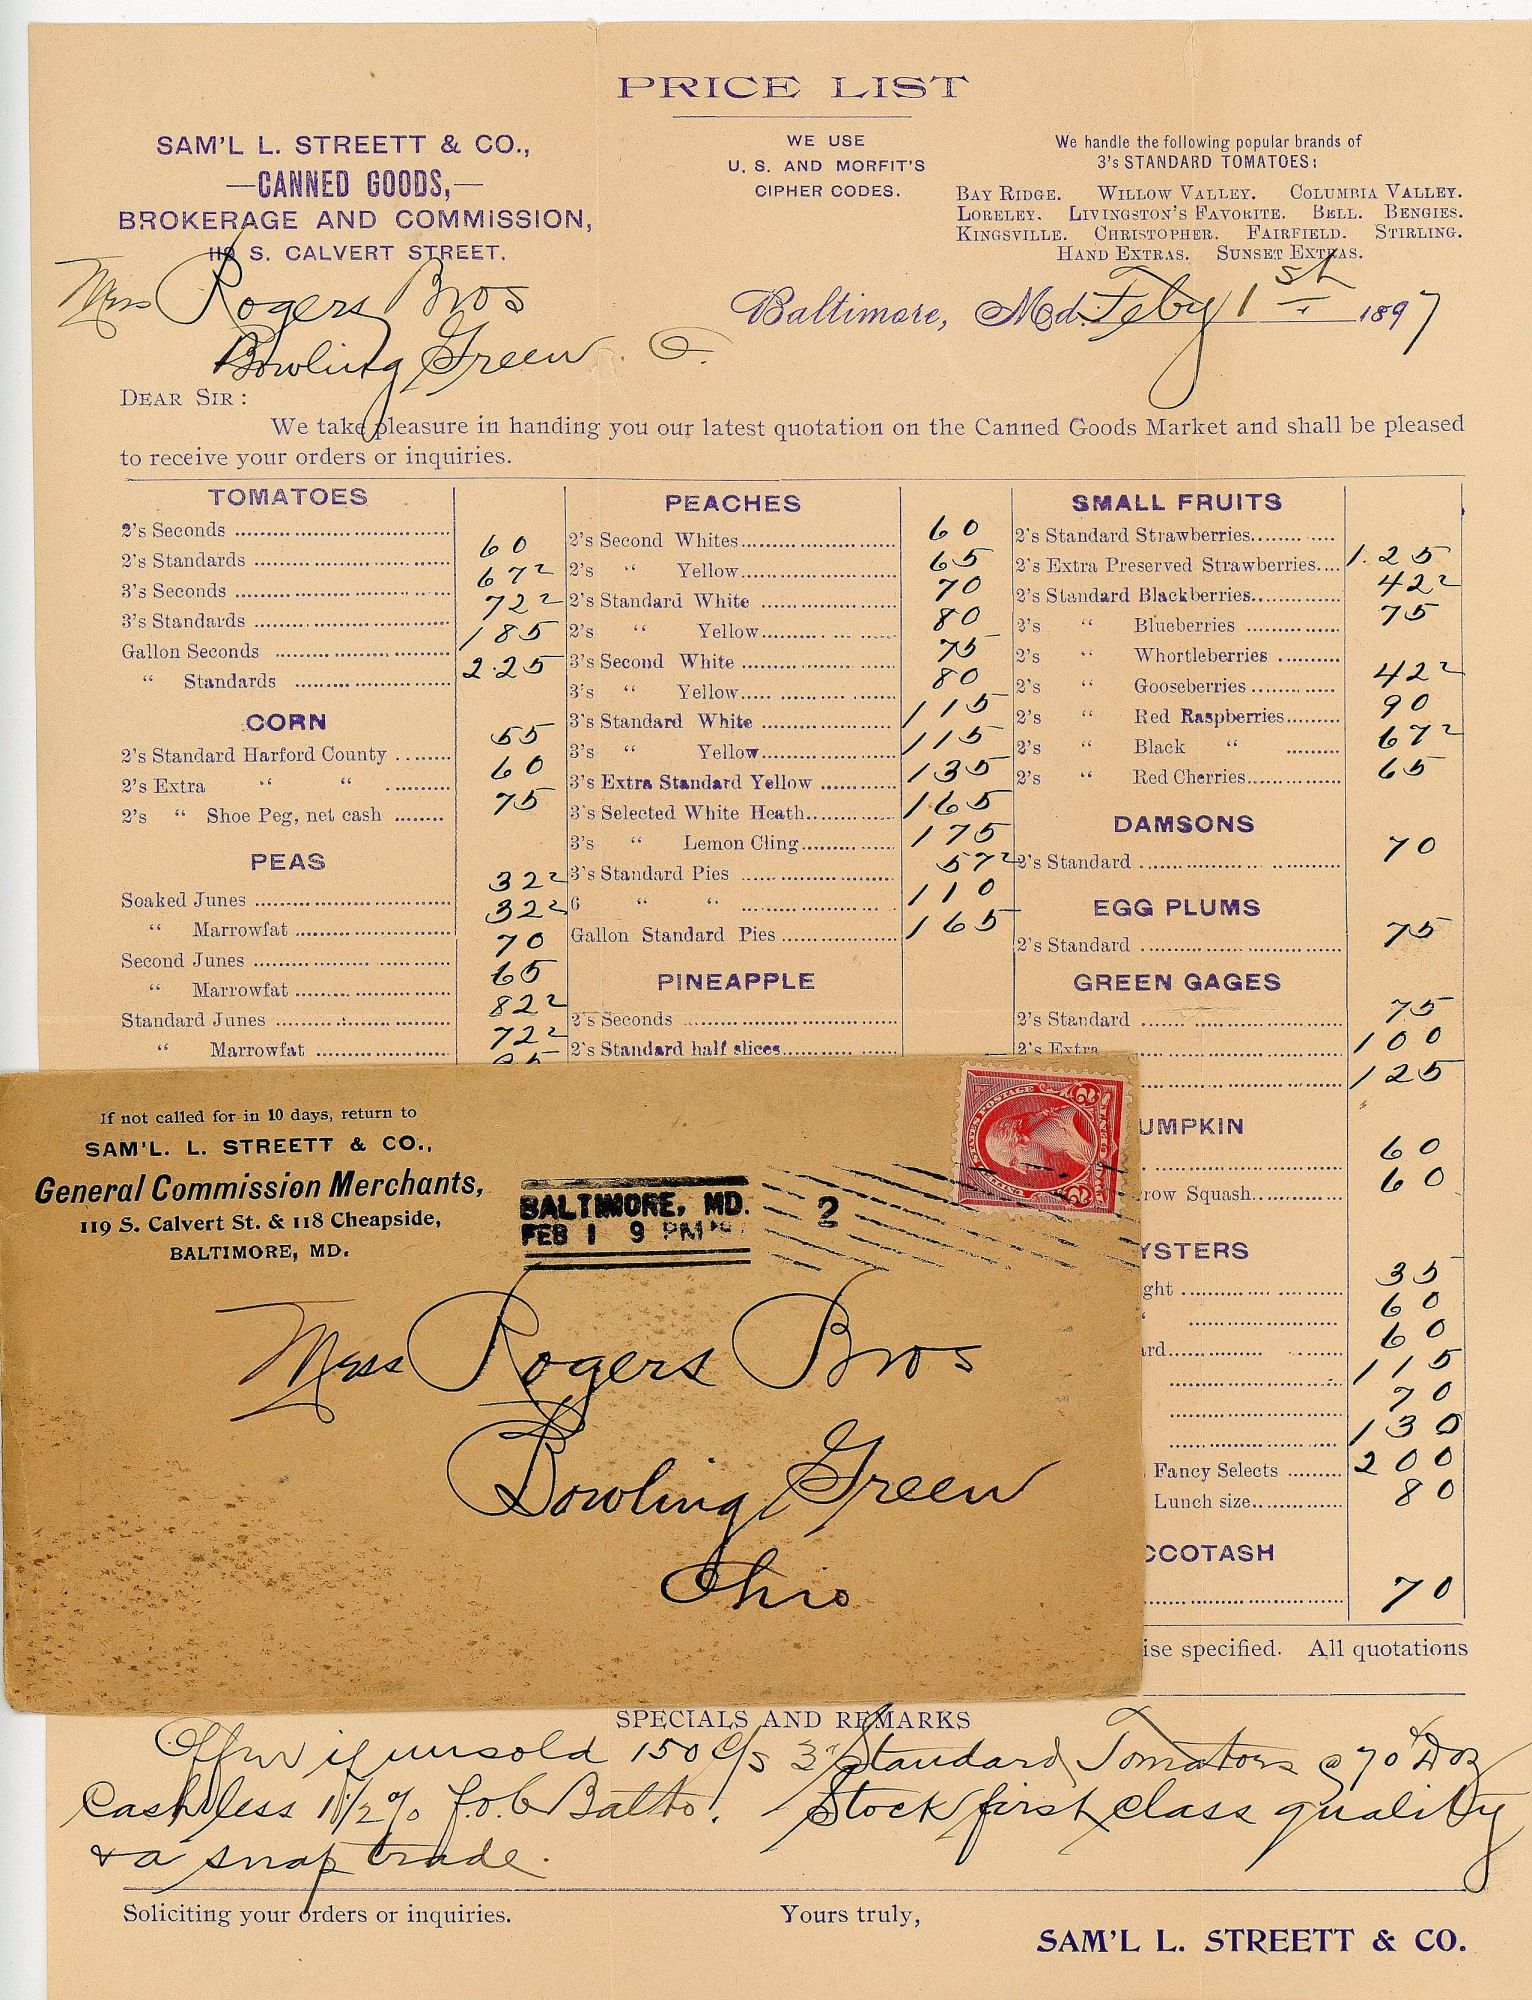 PRICE LIST
SAM'L L. STREETT & CO.,
—CANNED GOODS,—
BROKERAGE AND COMMISSION,
119 S. CALVERT STREET.
WE USE
U. S. AND MORFIT'S
CIPHER CODES.
We handle the following popular brands of
3's STANDARD TOMATOES:
BAY RIDGE. WILLOW VALLEY. COLUMBIA VALLEY.
LORELEY. LIVINGSTON'S FAVORITE. BELL. BENGIES.
KINGSVILLE. CHRISTOPHER. FAIRFIELD. STIRLING.
HAND EXTRAS. SUNSET EXTRAS.
Mess Rogers Bros
Bowling Green. O.
Baltimore, Md. Feby 1st 1897
DEAR SIR:
We take pleasure in handing you our latest quotation on the Canned Goods Market and shall be pleased
to receive your orders or inquiries.
TOMATOES
2's Seconds
2's Standards 60
3's Seconds 67²
3's Standards 72²
Gallon Seconds 185
“ Standards 2.25
CORN
2's Standard Harford County 55
2's Extra “ “ 60
2's “ Shoe Peg, net cash 75
PEAS
Soaked Junes 32²
“ Marrowfat 32²
Second Junes 70
“ Marrowfat 65
Standard Junes 82²
“ Marrowfat 72²
PEACHES
2's Second Whites 60
2's “ Yellow 65
2's Standard White 70
2's “ Yellow 80
3's Second White 75
3's “ Yellow 80
3's Standard White 115
3's “ Yellow 115
3's Extra Standard Yellow 135
3's Selected White Heath 165
3's “ Lemon Cling 175
3's Standard Pies 57²
6 “ “ 110
Gallon Standard Pies 165
PINEAPPLE
2's Seconds
2's Standard half slices
SMALL FRUITS
2's Standard Strawberries
2's Extra Preserved Strawberries 1.25
2's Standard Blackberries 42²
2's “ Blueberries 75
2's “ Whortleberries
2's “ Gooseberries 42²
2's “ Red Raspberries 90
2's “ Black “ 67²
2's “ Red Cherries 65
DAMSONS
2's Standard 70
EGG PLUMS
2's Standard 75
GREEN GAGES
2's Standard 75
2's Extra 100
125
UMPKIN
60
row Squash 60
YSTERS
ght 35
“ 60
ard 60
115
70
130
Fancy Selects 200
Lunch size 80
CCOTASH
70
ise specified. All quotations
If not called for in 10 days, return to
SAM'L. L. STREETT & CO.,
General Commission Merchants,
119 S. Calvert St. & 118 Cheapside,
BALTIMORE, MD.
BALTIMORE, MD.
FEB 1 9 PM
2
UNITED STATES POSTAGE
2 2
Mess Rogers Bros
Bowling Green
Ohio
SPECIALS AND REMARKS
Offer if unsold 150 c/s 3s Standard Tomatoes @ 70¢ Doz
Cash less 1 1/2% f.o.b Balto. Stock first class quality
& a snap trade.
Soliciting your orders or inquiries.
Yours truly,
SAM'L L. STREETT & CO.